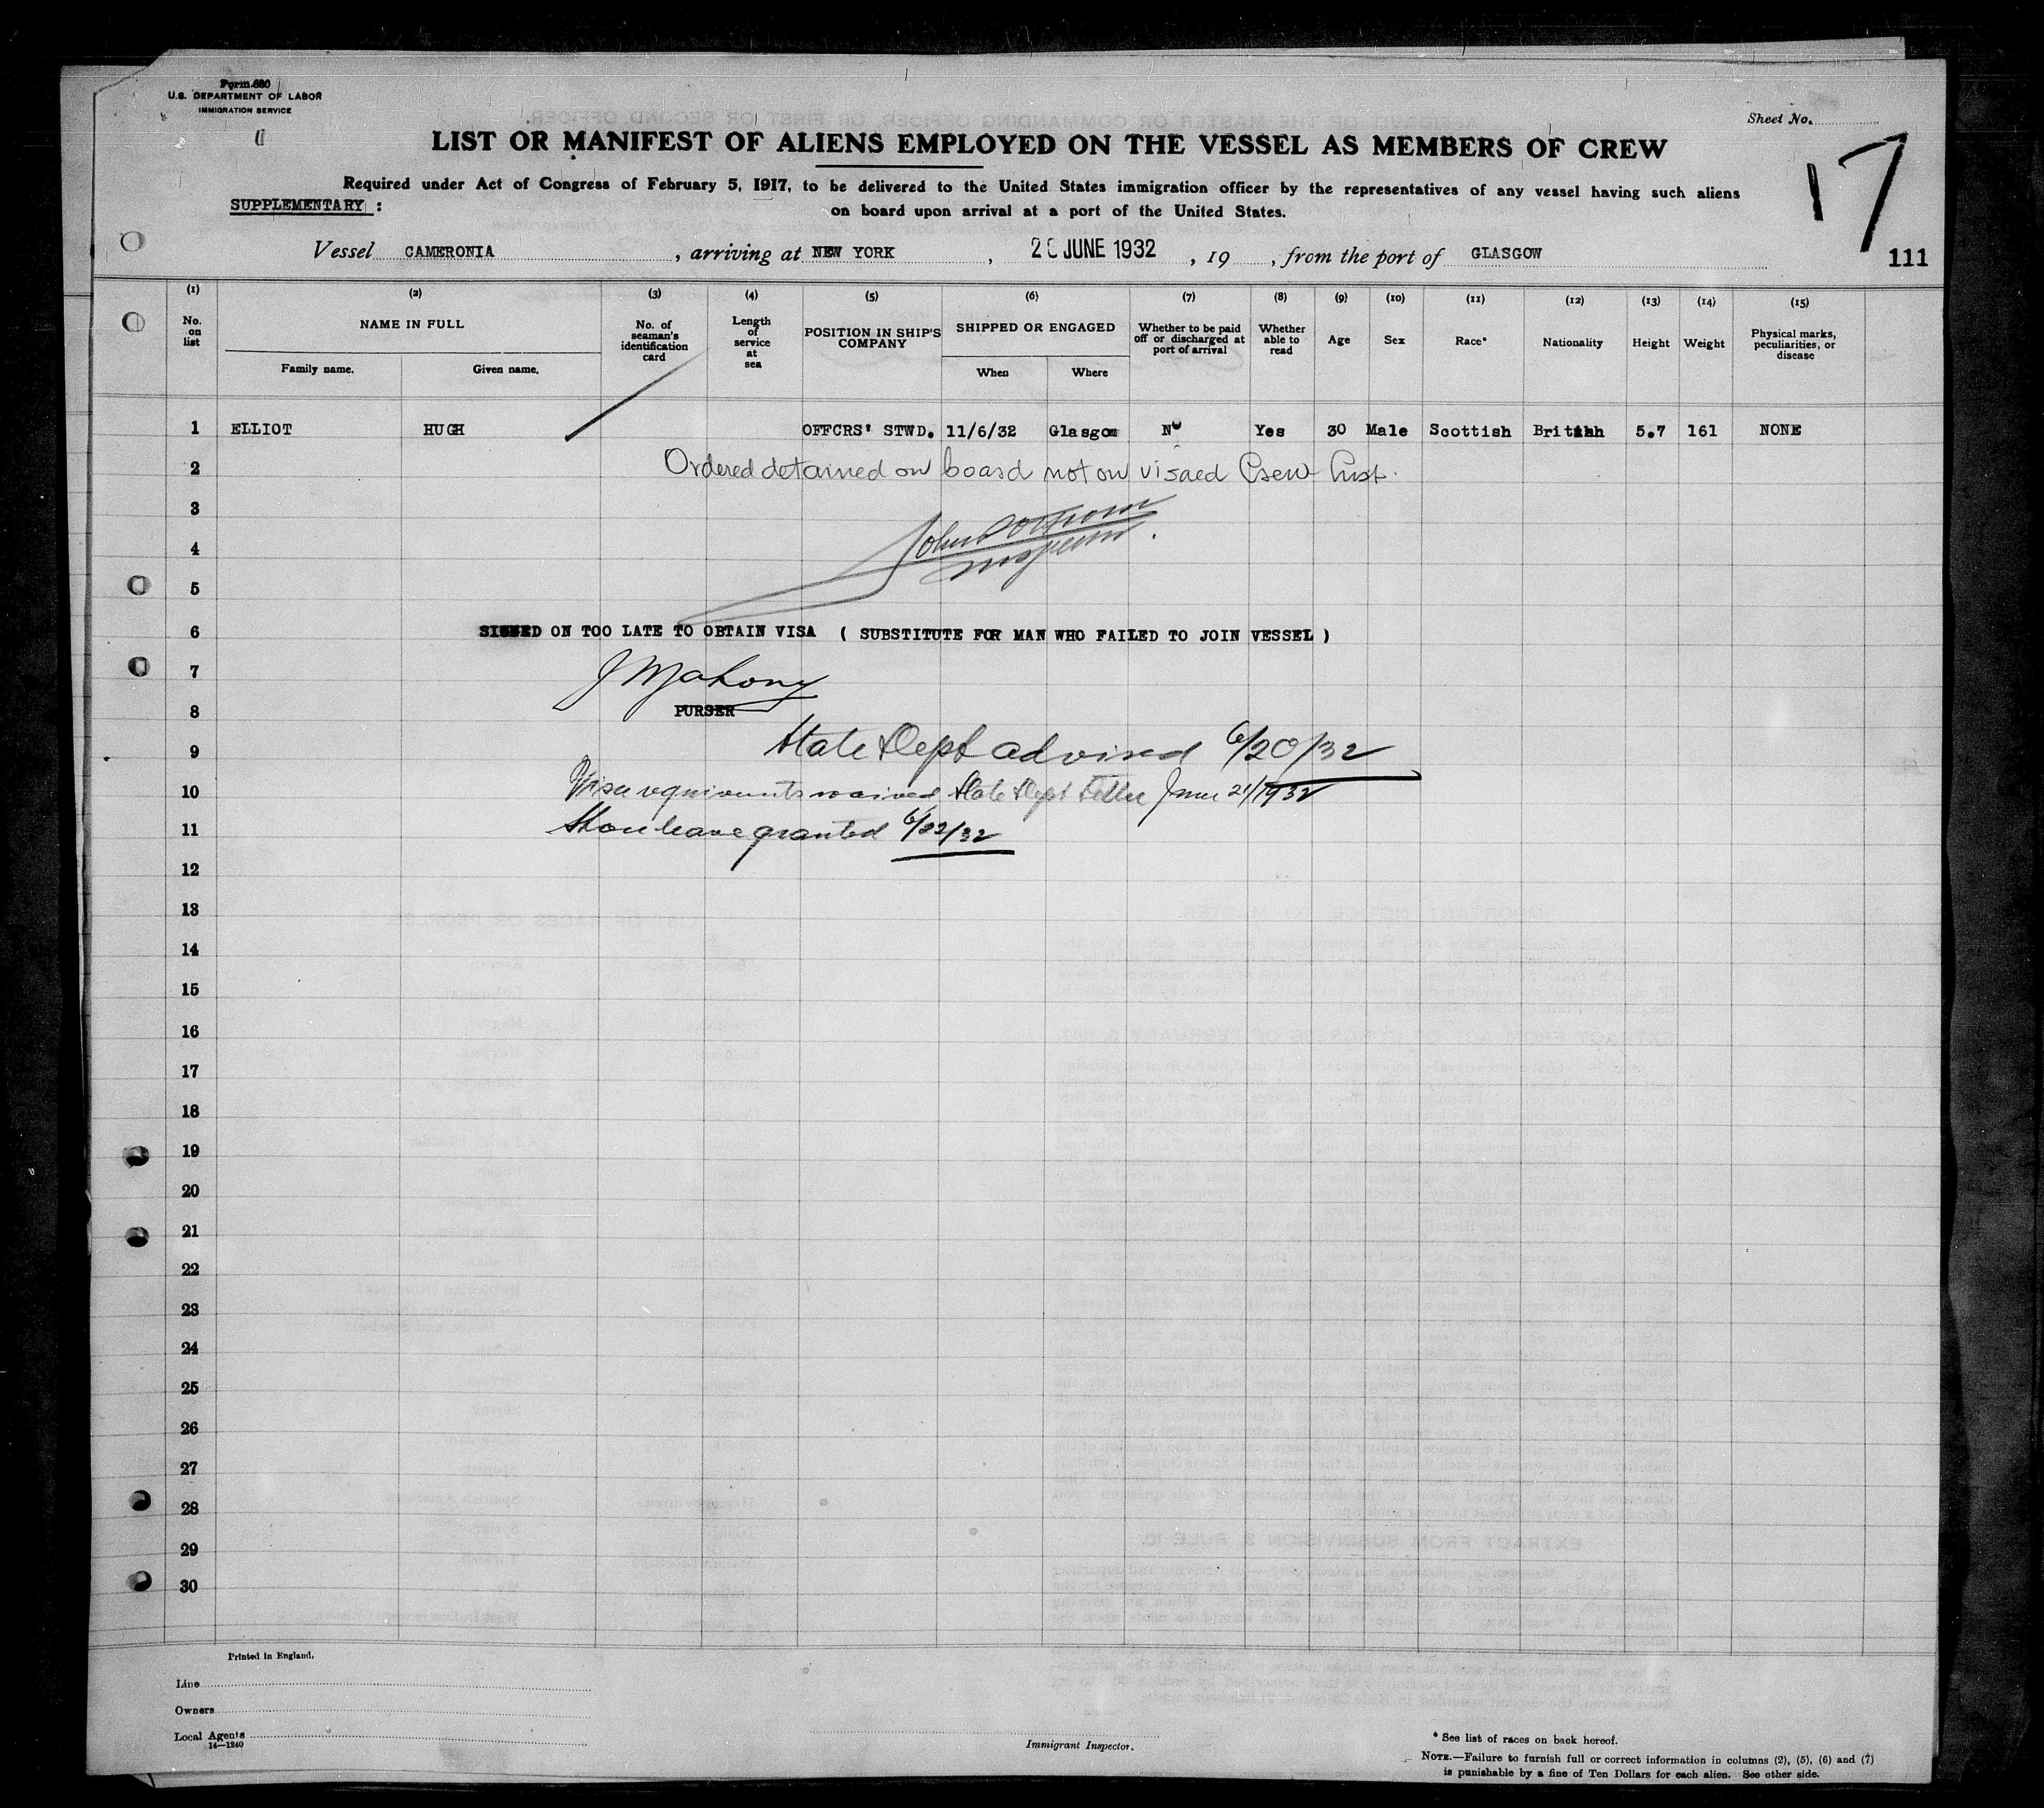 Form 680
U.S. DEPARTMENT OF LABOR
IMMIGRATION SERVICE
Sheet No.
17
LIST OR MANIFEST OF ALIENS EMPLOYED ON THE VESSEL AS MEMBERS OF CREW
Required under Act of Congress of February 5, 1917, to be delivered to the United States immigration officer by the representatives of any vessel having such aliens
SUPPLEMENTARY : on board upon arrival at a port of the United States.
Vessel CAMERONIA , arriving at NEW YORK , 20 JUNE 1932 , 19 , from the port of GLASGOW
111
(1) (2) (3) (4) (5) (6) (7) (8) (9) (10) (11) (12) (13) (14) (15)
No. on list NAME IN FULL Family name. Given name. No. of seaman's identification card Length of service at sea POSITION IN SHIP'S COMPANY SHIPPED OR ENGAGED When Where Whether to be paid off or discharged at port of arrival Whether able to read Age Sex Race* Nationality Height Weight Physical marks, peculiarities, or disease
1 ELLIOT HUGH OFFCRS' STWD. 11/6/32 Glasgow No Yes 30 Male Scottish British 5.7 161 NONE
2 Ordered detained on board not on visaed Crew List.
3 John
4 Inspector.
5
6 SIGNED ON TOO LATE TO OBTAIN VISA ( SUBSTITUTE FOR MAN WHO FAILED TO JOIN VESSEL )
7 J Mahony
8 PURSER
9 State Dept advised 6/20/32
10 Visa requirements waived State Dept Letter June 21/1932
11 Shore leave granted 6/22/32
12
13
14
15
16
17
18
19
20
21
22
23
24
25
26
27
28
29
30
Printed in England.
Line
Owners
Local Agents
14—1240
Immigrant Inspector.
* See list of races on back hereof.
NOTE.—Failure to furnish full or correct information in columns (2), (5), (6) and (7)
is punishable by a fine of Ten Dollars for each alien. See other side.